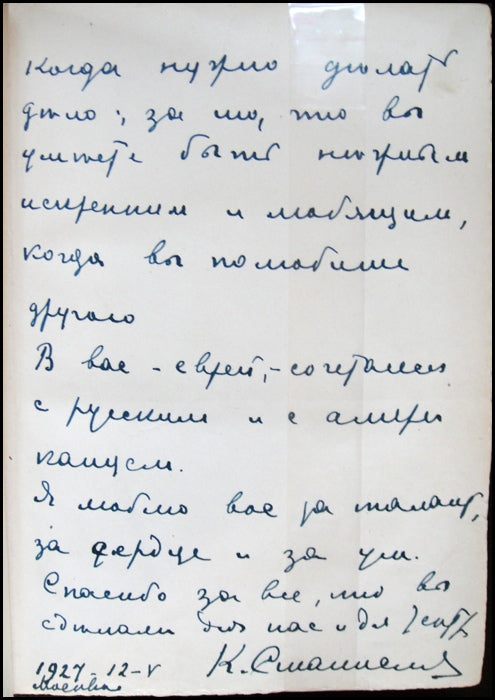 когда нужно дѣлать
дѣло; за то, что вы
умѣете быть нѣжным
искренним и любящим,
когда вы полюбите
другого
В вас – еврей, – сочетался
с русским и с амери
канцем.
Я люблю вас за талант,
за сердце и за ум.
Спасибо за все, что вы
сдѣлали для нас и для
К. Станиславский
1927 12-V
Москва